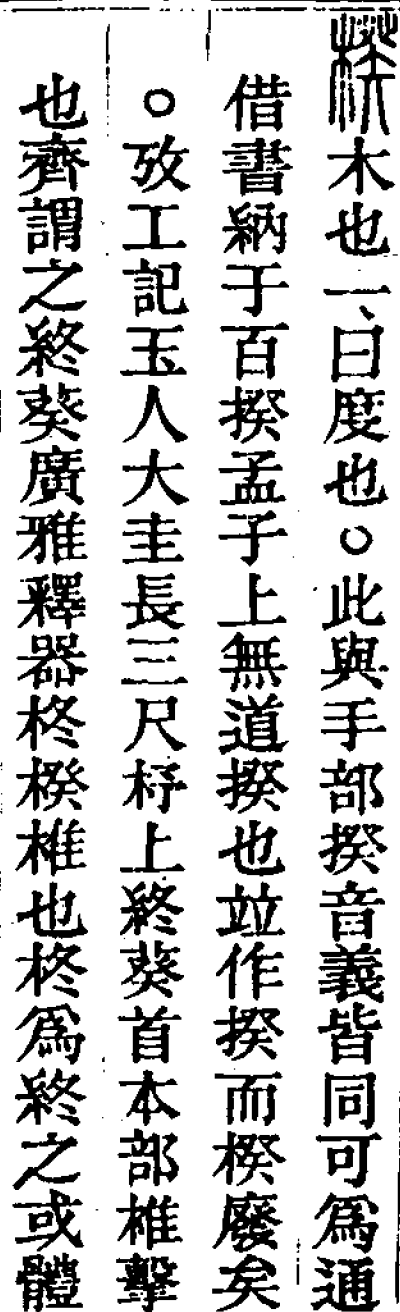 楑木也一曰度也○此與手部揆音義皆同可爲通
借書納于百揆孟子上無道揆也竝作揆而楑廢矣
○攷工記玉人大圭長三尺杼上終葵首本部椎擊
也齊謂之終葵廣雅釋器柊楑椎也柊爲終之或體